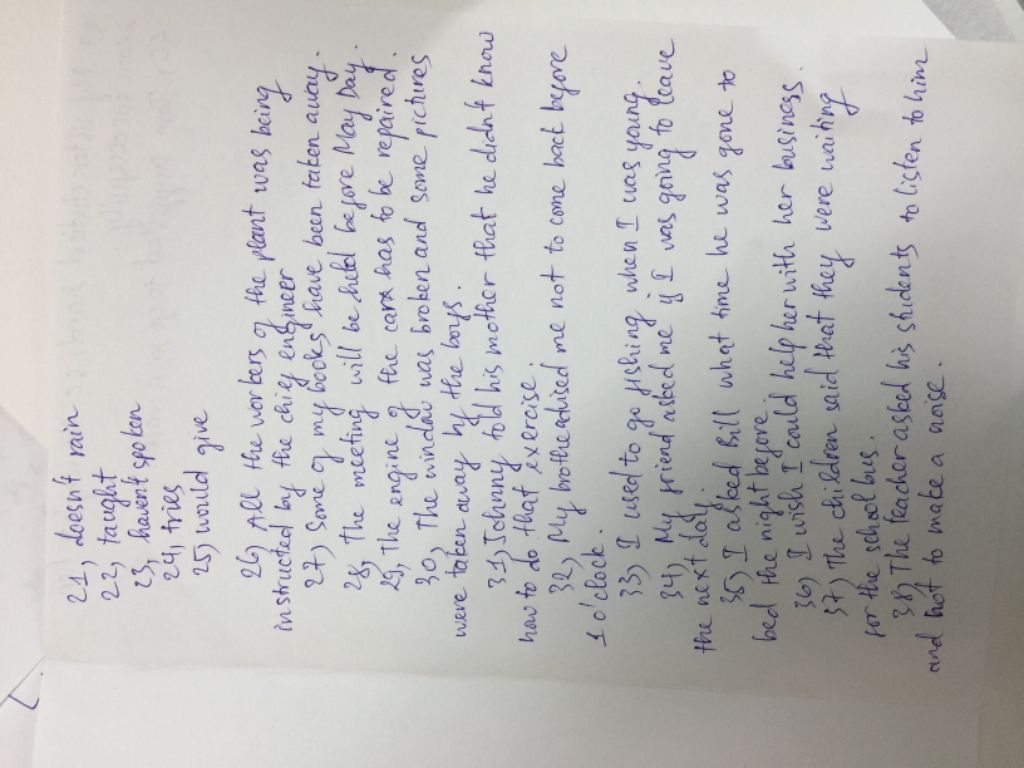 21, doesn't rain
22, taught
23, haven't spoken
24, tries
25, would give
26, All the workers of the plant was being
instructed by the chief engineer
27, Some of my books have been taken away.
28, The meeting will be held before May Day.
29, The engine of the car has to be repaired.
30, The window was broken and some pictures
were taken away by the boys.
31, Johnny told his mother that he didn't know
how to do that exercise.
32, My brother advised me not to come back before
1 o'clock.
33, I used to go fishing when I was young.
34, My friend asked me if I was going to leave
the next day.
35, I asked Bill what time he was gone to
bed the night before.
36, I wish I could help her with her business.
37, The children said that they were waiting
for the school bus.
38, The teacher asked his students to listen to him
and not to make a noise.